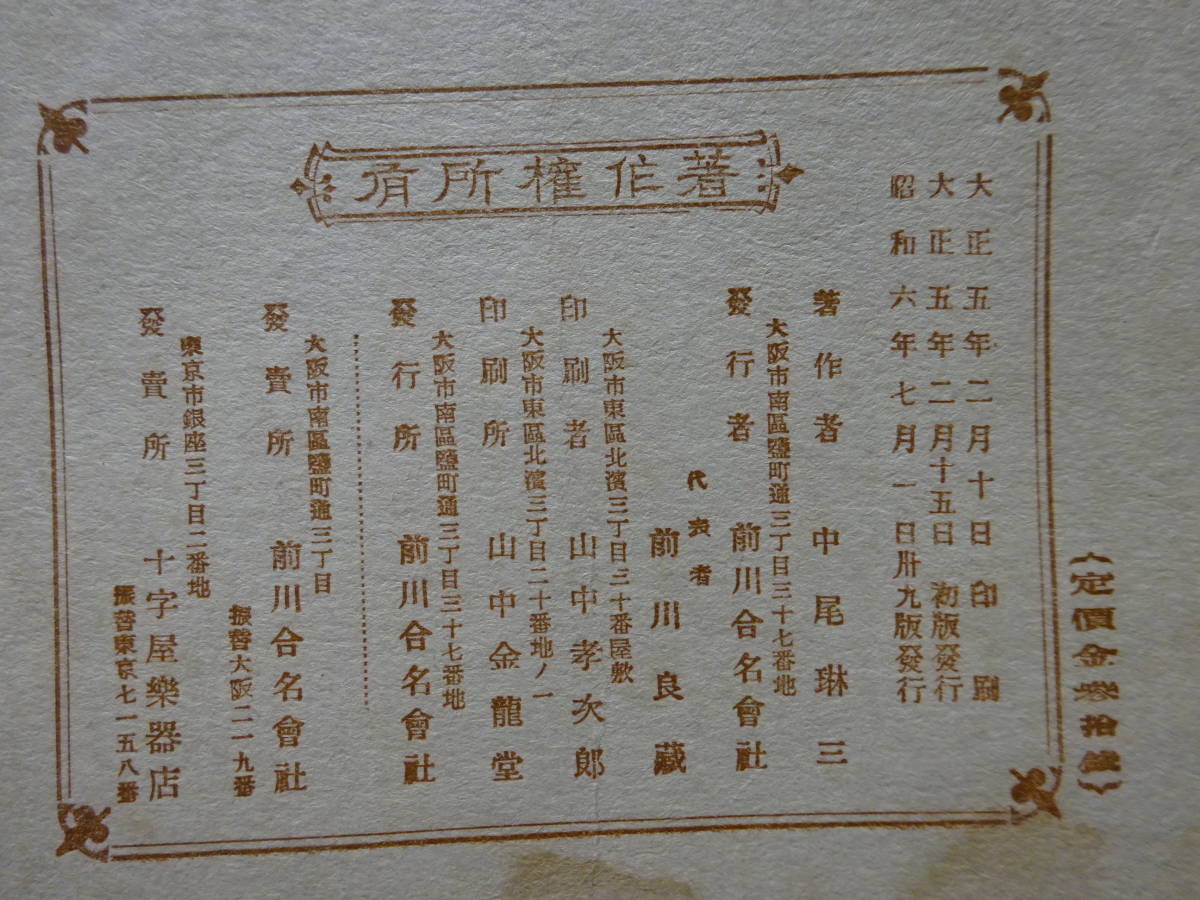 (定價金參拾錢)
著作權所有
大正五年二月十日印刷
大正五年二月十五日 初版發行
昭和六年七月一日卅九版發行
著作者 中尾琳三
大阪市南區鹽町通三丁目三十七番地
發行者 前川合名會社
代表者
前川良藏
大阪市東區北濱三丁目三十番屋敷
印刷者 山中孝次郎
大阪市東區北濱三丁目二十番地ノ一
印刷所 山中金龍堂
大阪市南區鹽町通三丁目三十七番地
發行所 前川合名會社
大阪市南區鹽町通三丁目
發賣所 前川合名會社
振替大阪二一九番
東京市銀座三丁目二番地
發賣所 十字屋樂器店
振替東京七一五八番